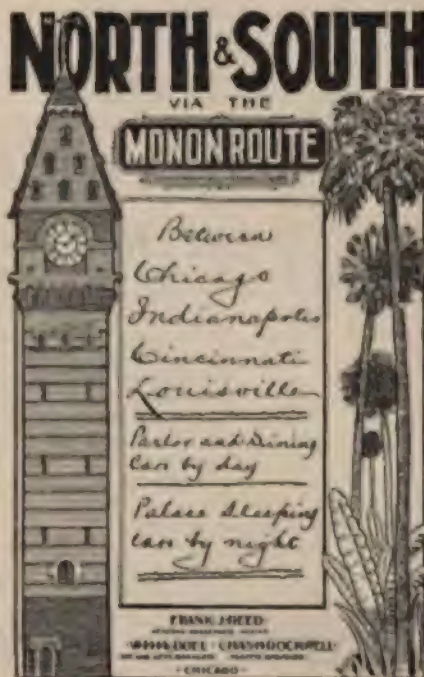 NORTH & SOUTH
VIA THE
MONON ROUTE
Between
Chicago
Indianapolis
Cincinnati
Louisville
Parlor and Dining
Cars by day
Palace Sleeping
Cars by night
FRANK J. REED
GENERAL PASSENGER AGENT
W.H. McDOEL CHAS. H. ROCKWELL
TRAFFIC MANAGER
CHICAGO